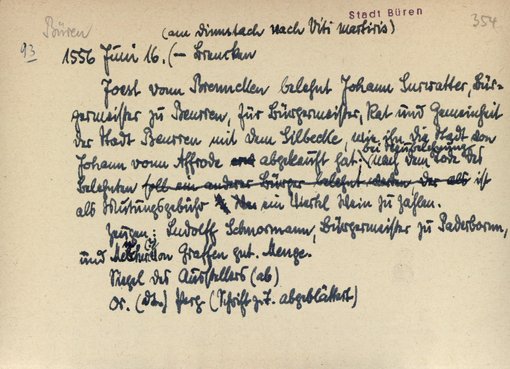 Büren
Stadt Büren
354
(am dinnstach nach Viti martiris)
93
1556 Juni 16. (- Brencken
Joest vonn Brenncken belehnt Johann Surwatter, Bür-
germeister zu Beurren, für Bürgermeister, Rat und Gemeinheit
der Stadt Beurren mit dem Elbecke, wie ihn die Stadt von
Johann vonn Affrode abgekauft hat; (nach dem Tode des
bei Neubelehnung
Belehnten soll ein anderer Bürger belehnt werden der als ist
als Mutungsgebühr ein Viertel Wein zu zahlen.
Zeugen: Ludolff Schnormann, Bürgermeister zu Paderbornn,
und Melchior von Graffen gnt. Menge.
Siegel des Ausstellers (ab)
Or. (dt.) Perg. (Schrift z.T. abgeblättert)